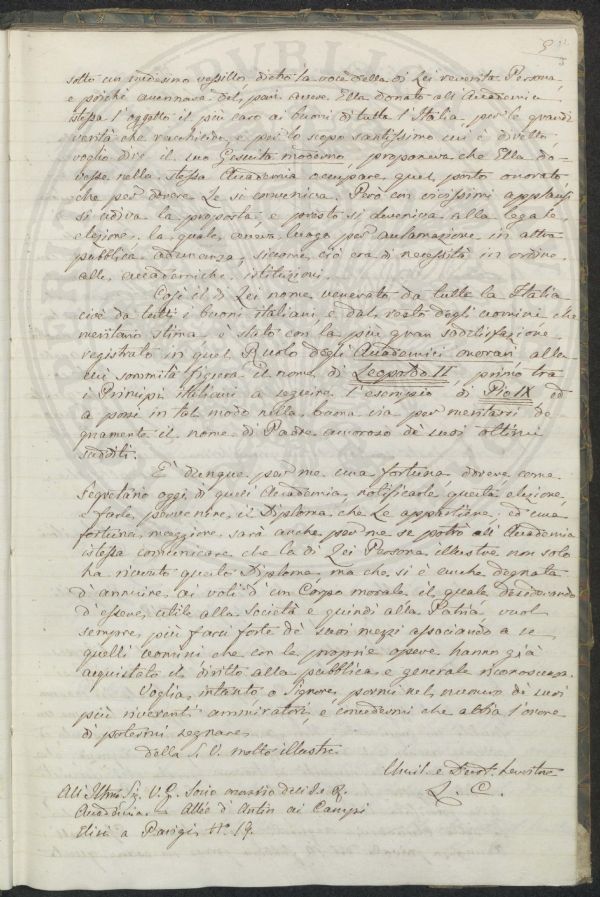 sotto un medesimo vessillo dietro la voce della di Lei reverita Persona,
e poichè avennava del pari avere Ella donato all'Accademia
istessa l'oggetto il più caro ai buoni di tutta l'Italia, per le grandi
verità che racchiude, e per lo scopo santissimo cui è diretto,
voglio dire il suo Gesuita moderno, proponeva che Ella do=
vesse nella stessa Accademia occupare quel posto onorato
che per dovere Le si conveniva. Però con vivissimi applausi
si udiva la proposta e presto si deveniva alla legale
elezione, la quale aveva luogo per acclamazione in altra
pubblica adunanza, siccome ciò era di necessità in ordine
alle accademiche istituzioni.
Così il di Lei nome venerato da tutta la Italia
cioè da tutti i buoni italiani, e dal resto degli uomini che
meritano stima è stato con la più gran sodisfazione
registrato in quel Ruolo degli Accademici onorari alla
cui sommità figura il nome di Leopoldo II, primo tra
i Principi italiani a seguire l'esempio di Pio IX ed
a porsi in tal modo nella buona via per meritarsi de
gnamente il nome di Padre amoroso de suoi ottimi
sudditi.
È dunque per me una fortuna dovere, come
Segretario oggi di quell'Accademia, notificarle questa elezione,
e farle pervenire il Diploma che Le appartiene: ed una
fortuna maggiore sarà anche per me se potrò all'Accademia
istessa comunicare che la di Lei Persona illustre non solo
ha ricevuto quello Diploma, ma che si è anche degnata
d'annuire ai voti d'un Corpo morale il quale desiderando
d'essere utile alla Società e quindi alla Patria vuol
sempre più farsi forte de' suoi mezzi associando a se
quelli uomini che con le proprie opere hanno già
acquistato il diritto alla pubblica e generale riconoscenza.
Voglia intanto o Signore, pormi nel numero de suoi
più riverenti ammiratori, e concedermi che abbia l'onore
di potermi segnare
Della S. V. molto illustre.
Umil. e Devot. Servitore
L. C.
All'Illmo Sig. V. G. Socio onorario della R.
Accademia - Allée d'Antin ai Campi
Elisi a Parigi, N° 19.